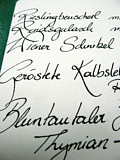 Rieslingbeuschel m
Rindsgulasch m
Wiener Schnitzel
Geröstete Kalbsleb
Bluntautaler
Thymian-